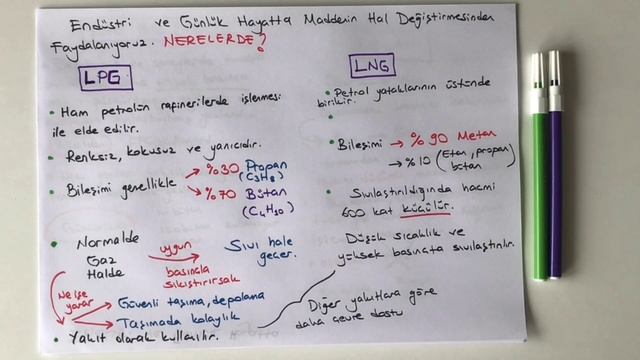 Endüstri ve Günlük Hayatta Maddenin Hal Değiştirmesinden
Faydalanıyoruz. NERELERDE?
LPG
• Ham petrolün rafinerilerde işlenmesi
ile elde edilir.
• Renksiz, kokusuz ve yanıcıdır.
• Bileşimi genellikle → %30 Propan
(C3H8)
→ %70 Bütan
(C4H10)
• Normalde
Gaz
Halde
uygun
basınçla
sıkıştırırsak
Sıvı hale
geçer.
Ne işe
yarar
Güvenli taşıma, depolama
Taşımada kolaylık
• Yakıt olarak kullanılır.
LNG
• Petrol yataklarının üstünde
birikir.
•
• Bileşimi → %90 Metan
→ %10 (Etan, propan
bütan
• Sıvılaştırıldığında hacmi
600 kat küçülür.
Düşük sıcaklık ve
yüksek basınçta sıvılaştırılır.
Diğer yakıtlara göre
daha çevre dostu